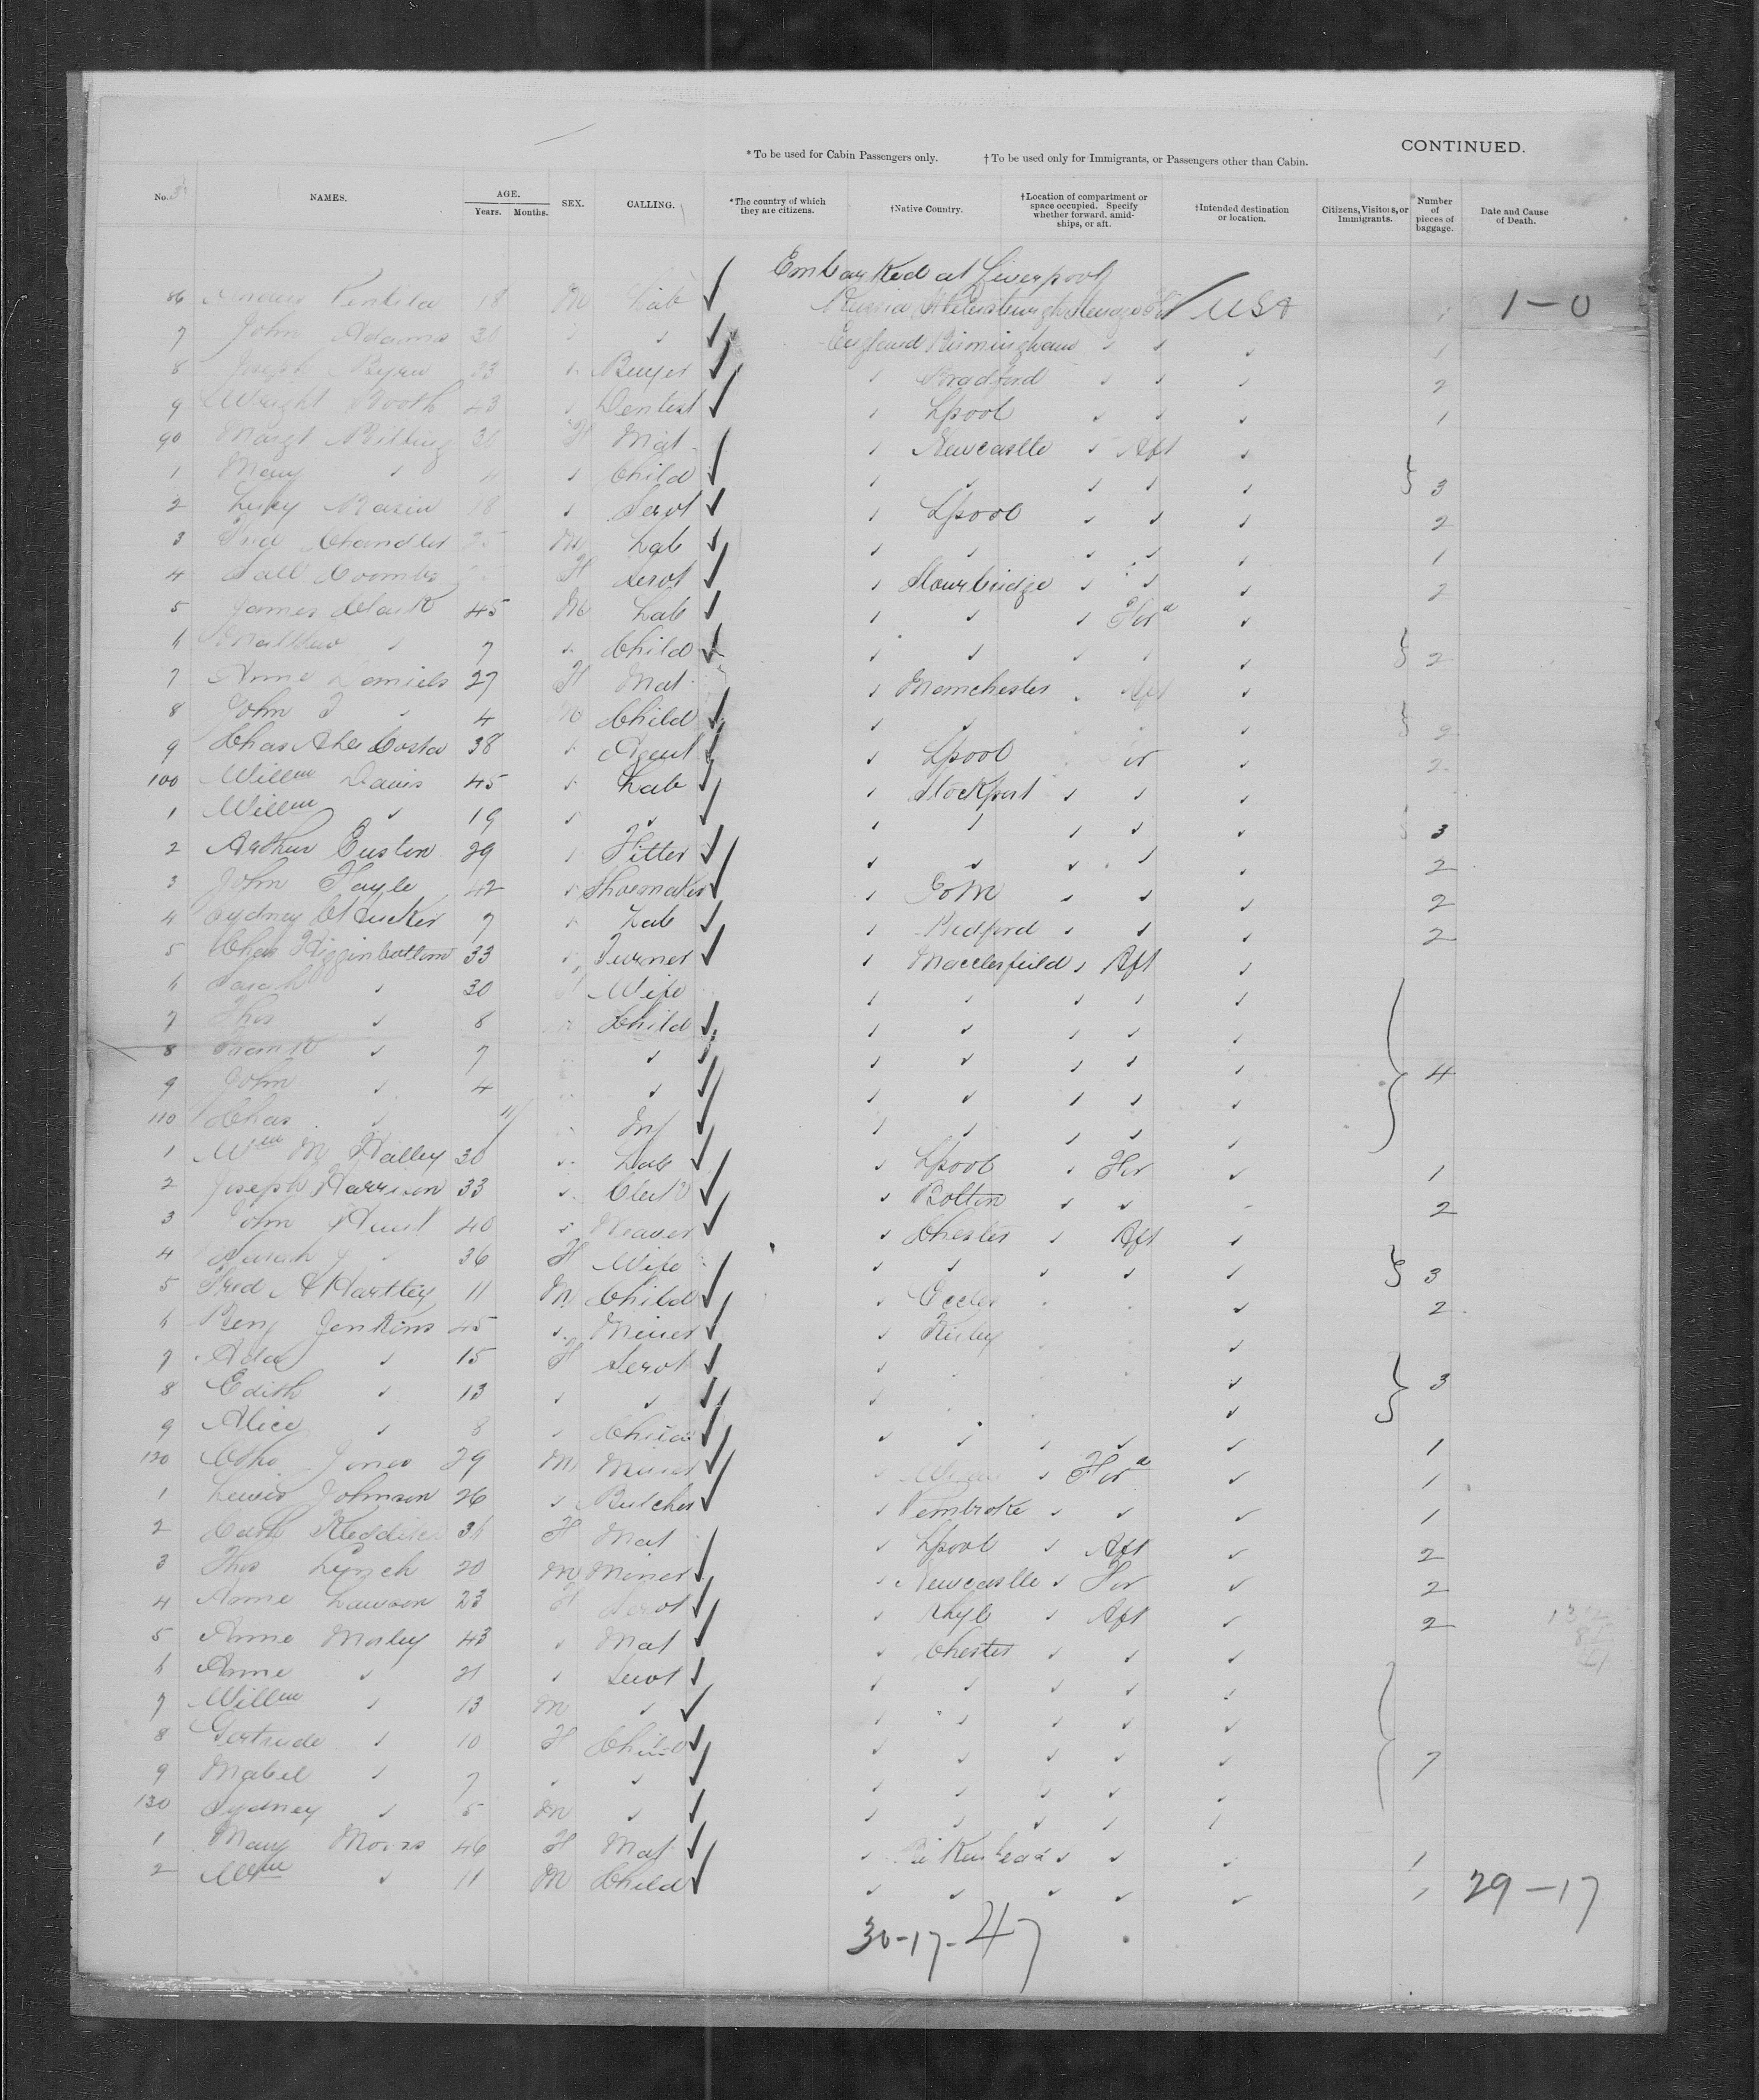 CONTINUED.
* To be used for Cabin Passengers only. † To be used only for Immigrants, or Passengers other than Cabin.
No. NAMES. AGE. Years. Months. SEX. CALLING. *The country of which they are citizens. †Native Country. †Location of compartment or space occupied. Specify whether forward, amidships, or aft. †Intended destination or location. Citizens, Visitors, or Immigrants. Number of pieces of baggage. Date and Cause of Death.
Embarked at Liverpool
86 18 M Lab Russia USA 1 1-0
7 John Adams 30 " " England Birmingham " " " 1
8 Joseph Byrn 23 " Buyer " Bradford " " " 2
9 Wright Booth 43 " Dentist " Lpool " " " 1
90 Margt Billing 30 F Mat " Newcastle " Aft "
1 Mary " 4 " Child " " " " " 3
2 18 " Servt " Lpool " " " 2
3 Chandler M Lab " " " " " 1
4 Coombs F Servt " Stourbridge " " " 2
5 James Clark 45 M Lab " " " For'd "
6 Matthew " 7 " Child " " " " " 2
7 Anne Daniels 27 F Mat " Manchester " Aft "
8 John J " 4 M Child " " " " " 2
9 Chas Costa 38 " Agent " Lpool " For " 2
100 Willm Davis 45 " Lab " Stockport " " "
1 Willm " 19 " " " " " " " 3
2 Arthur Euston 29 " Fitter " " " " " 2
3 John Fayle 42 " Shoemaker " IoM " " " 2
4 Sydney 7 " Lab " Bedford " " " 2
5 Chas Higginbottom 33 " Turner " Macclesfield " Aft "
6 Sarah " 30 F Wife " " " " "
7 Thos " 8 M Child " " " " "
8 Frank " 7 " " " " " " " 4
9 John " 4 " " " " " " "
110 Chas " 11/ " Inf " " " " "
1 Wm M Halley 30 " Lab " Lpool " For " 1
2 Joseph Harrison 33 " Clerk " Bolton " " " 2
3 John Hunt 40 " Weaver " Chester " Aft "
4 Sarah J " 36 F Wife " " " " " 3
5 Fred A Hartley 11 M Child " Eccles " " " 2
6 Benj Jenkins 45 " Miner " "
7 Ada " 15 F Servt " " " " "
8 Edith " 13 " " " " " " " 3
9 Alice " 8 " Child " " " " "
120 Jones 29 M Miner " " For'd " 1
1 Lewis Johnson 26 " Butcher " Pembroke " " " 1
2 Cath 36 F Mat " Lpool " Aft " 2
3 Thos Lynch 20 M Miner " Newcastle " For " 2
4 Anne Lawson 23 F Servt " Rhyl " Aft " 2
5 Anne Morley 43 " Mat " Chester " " "
6 Anne " 21 " Servt " " " " "
7 Willm " 13 M " " " " " "
8 Gertrude " 10 F Child " " " " "
9 Mabel " 7 " " " " " " " 7
130 Sydney " 5 M " " " " " "
1 Mary Morris 46 F Mat " Birkenhead " " " 1
2 Wm " 11 M Child " " " " " " 29-17
30-17-47